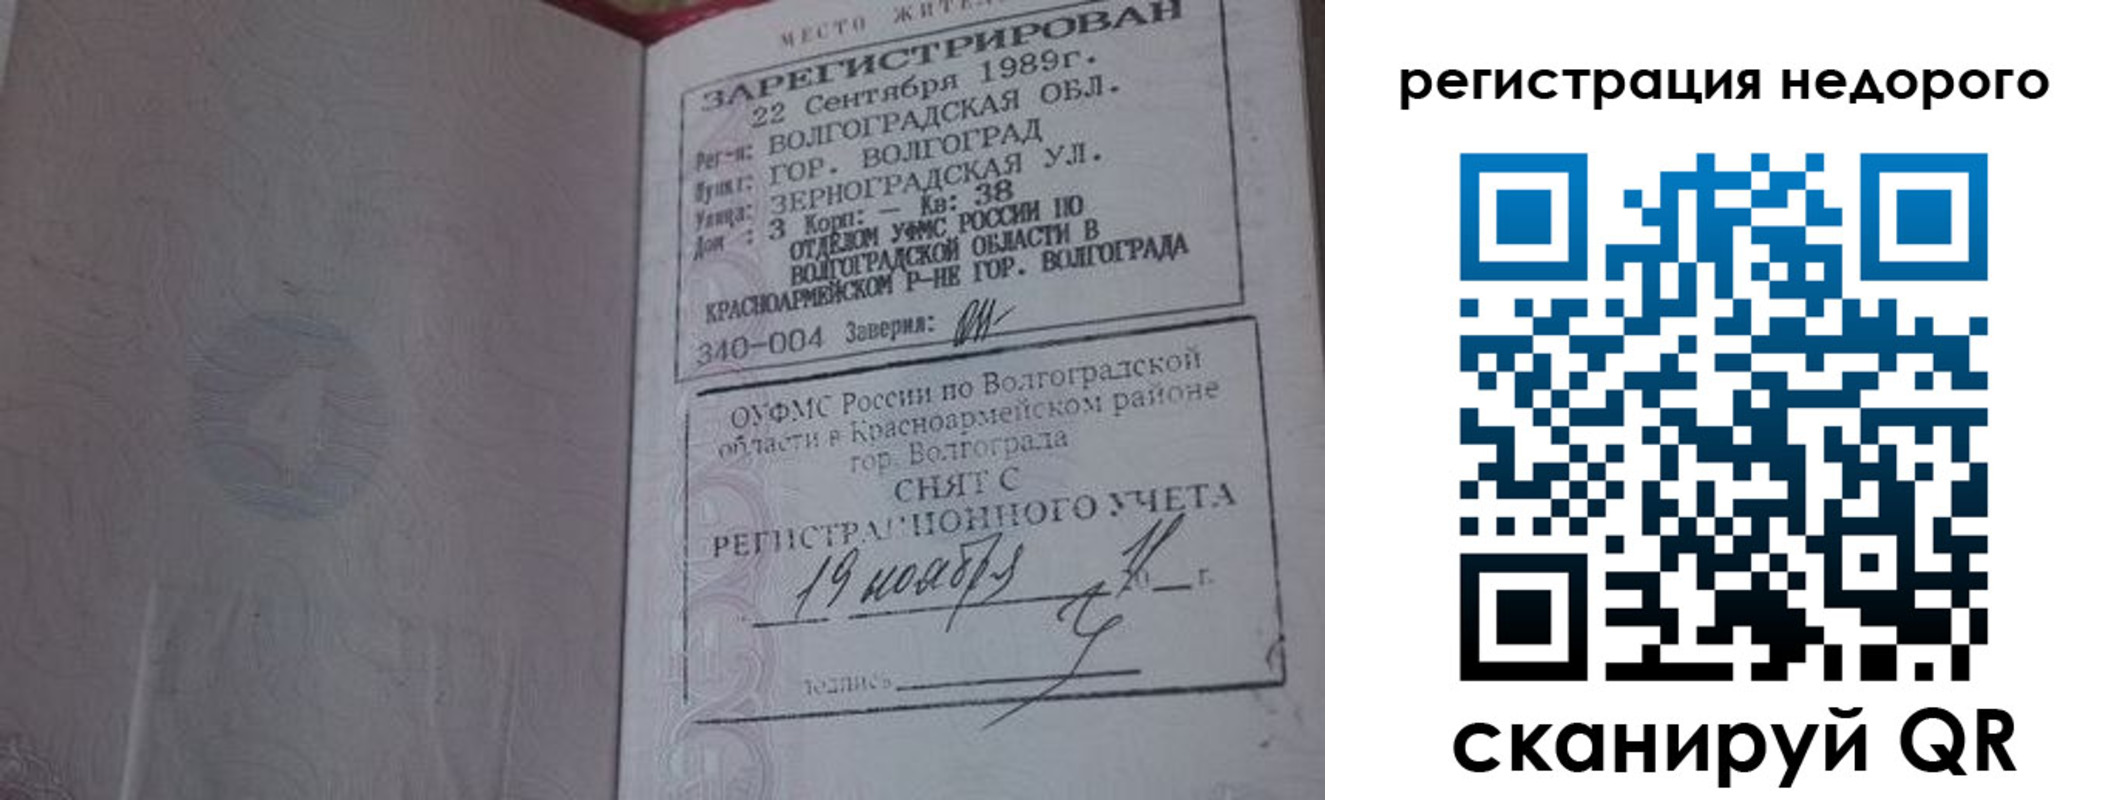 МЕСТО ЖИТЕЛ
ЗАРЕГИСТРИРОВАН
22 Сентября 1989г.
Рег-н: ВОЛГОГРАДСКАЯ ОБЛ.
Пункт: ГОР. ВОЛГОГРАД
Улица: ЗЕРНОГРАДСКАЯ УЛ.
Дом : 3 Корп: — Кв: 38
ОТДЕЛОМ УФМС РОССИИ ПО
ВОЛГОГРАДСКОЙ ОБЛАСТИ В
КРАСНОАРМЕЙСКОМ Р-НЕ ГОР. ВОЛГОГРАДА
340-004 Заверил:
ОУФМС России по Волгоградской
области в Красноармейском районе
гор. Волгограда
СНЯТ С
РЕГИСТРАЦИОННОГО УЧЕТА
19 ноября 20 11 г.
подпись
регистрация недорого
сканируй QR